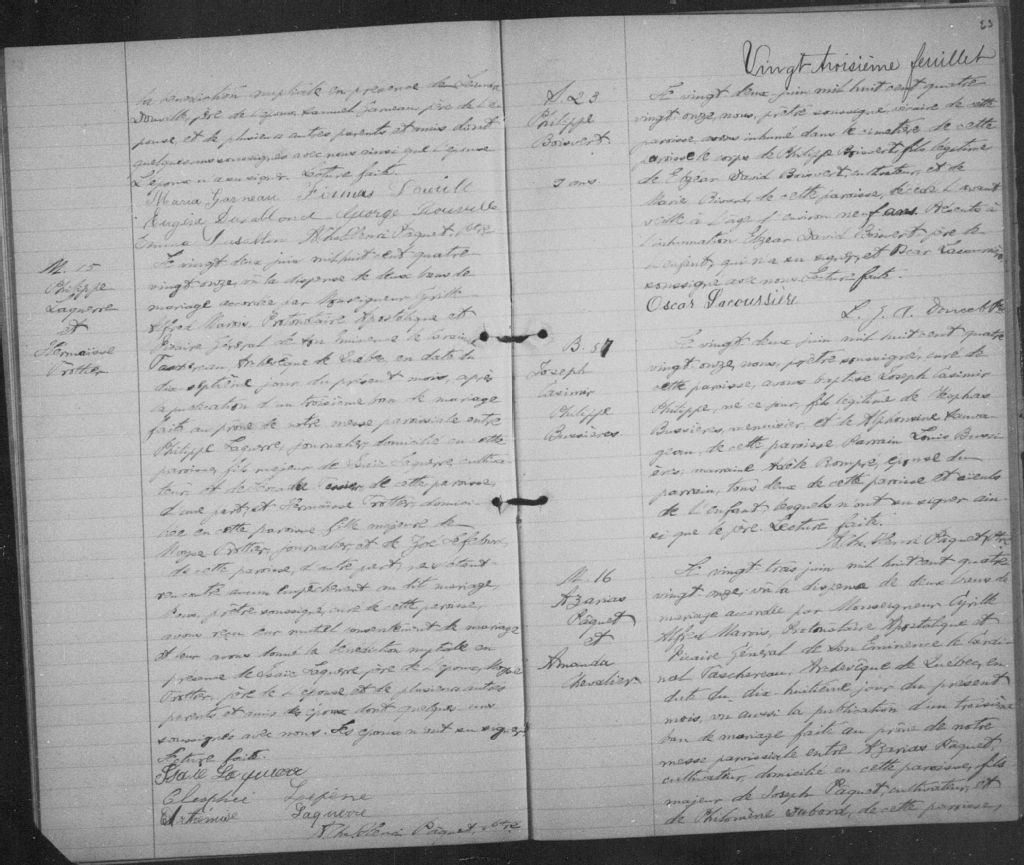 la bénédiction nuptiale en présence de
Douville, père de l'époux, Samuel Garneau, père de l'é-
pouse et de plusieurs autres parents et amis dont
quelques uns soussignés avec nous ainsi que l'épouse
L'époux n'a su signer. Lecture faite.
Maria Garneau Firmas Douvill
Eugénie George Douville
Emma Ph. Henri Paquet, Ptre
M. 15
Philippe
Laquerre
et
Hermaïsse
Trottier
Le vingt deux juin mil huit cent quatre
vingt onze, vû la dispense de deux bans de
mariage accordée par Monseigneur Cyrille
Alfred Marois, Protonotaire Apostolique et
Vicaire Général de Son Eminence le Cardinal
Taschereau, Archevêque de Québec en date du
dix septième jour du présent mois, après
la publication d'un troisième ban de mariage
faite au prône de notre messe paroissiale entre
Philippe Laquerre, journalier, domicilié en cette
paroisse, fils majeur de Isaïe Laquerre, cultiva-
teur, et de de cette paroisse,
d'une part, et Hermaïsse Trottier, domici-
liée en cette paroisse fille majeure de
Moyse Trottier, journalier, et de Zoé Lefebvre,
de cette paroisse, d'autre part, ne s'étant
rencontré aucun empêchement au dit mariage,
Nous, prêtre soussigné, curé de cette paroisse,
avons reçu leur mutuel consentement de mariage
et leur avons donné la bénédiction nuptiale en
présence de Isaïe Laquerre père de l'époux, Moyse
Trottier, père de l'épouse et de plusieurs autres
parents et amis dont quelques uns
soussignés avec nous. Les époux n'ont su signer
Lecture faite.
Isaïe Laquerre
Cleophée
Arthémise Laquerre
Ph. Henri Paquet, Ptre
23
Vingt troisième feuillet
S. 23
Philippe
Boisvert
9 ans
Le vingt deux juin mil huit cent quatre
vingt onze, nous, prêtre soussigné, vicaire de cette
paroisse avons inhumé dans le cimetière de cette
paroisse le corps de Philippe Boisvert fils légitime
de Elzéar David Boisvert, cultivateur, et de
Marie de cette paroisse, décédé l'avant
veille à l'âge d'environ neuf ans. Présents à
l'inhumation Elzéar David Boisvert père de
l'enfant, qui n'a su signer, et Oscar Lacoursière
soussigné avec nous. Lecture faite.
Oscar Lacoursière
L. J. A. Doucet Ptre
B. 57
Joseph
Casimir
Philippe
Bussières
Le vingt deux juin mil huit cent quatre
vingt onze, nous, prêtre soussigné, curé de
cette paroisse, avons baptisé Joseph Casimir
Philippe, né ce jour, fils légitime de Cléophas
Bussières, menuisier, et de Alphonsine
de cette paroisse Parrain Louis Bussi
ères, marraine Adèle Rompré, épouse du
parrain, tous deux de cette paroisse et aïeuls
de l'enfant, lesquels n'ont su signer ain
si que le père. Lecture faite.
Ph. Henri Paquet, Ptre
M. 16
Azarias
Paquet
et
Amanda
Chevalier
Le vingt trois juin mil huit cent quatre
vingt onze, vû la dispense de deux bans de
mariage accordée par Monseigneur Cyrille
Alfred Marois, Protonotaire Apostolique et
Vicaire Général de Son Eminence le Cardi-
nal Taschereau, Archevêque de Québec, en
date du dix-huitième jour du présent
mois, vu aussi la publication d'un troisième
ban de mariage faite au prône de notre
messe paroissiale entre Azarias Paquet,
cultivateur, domicilié en cette paroisse, fils
majeur de Joseph Paquet, cultivateur, et
de Philomène Dabord, de cette paroisse,